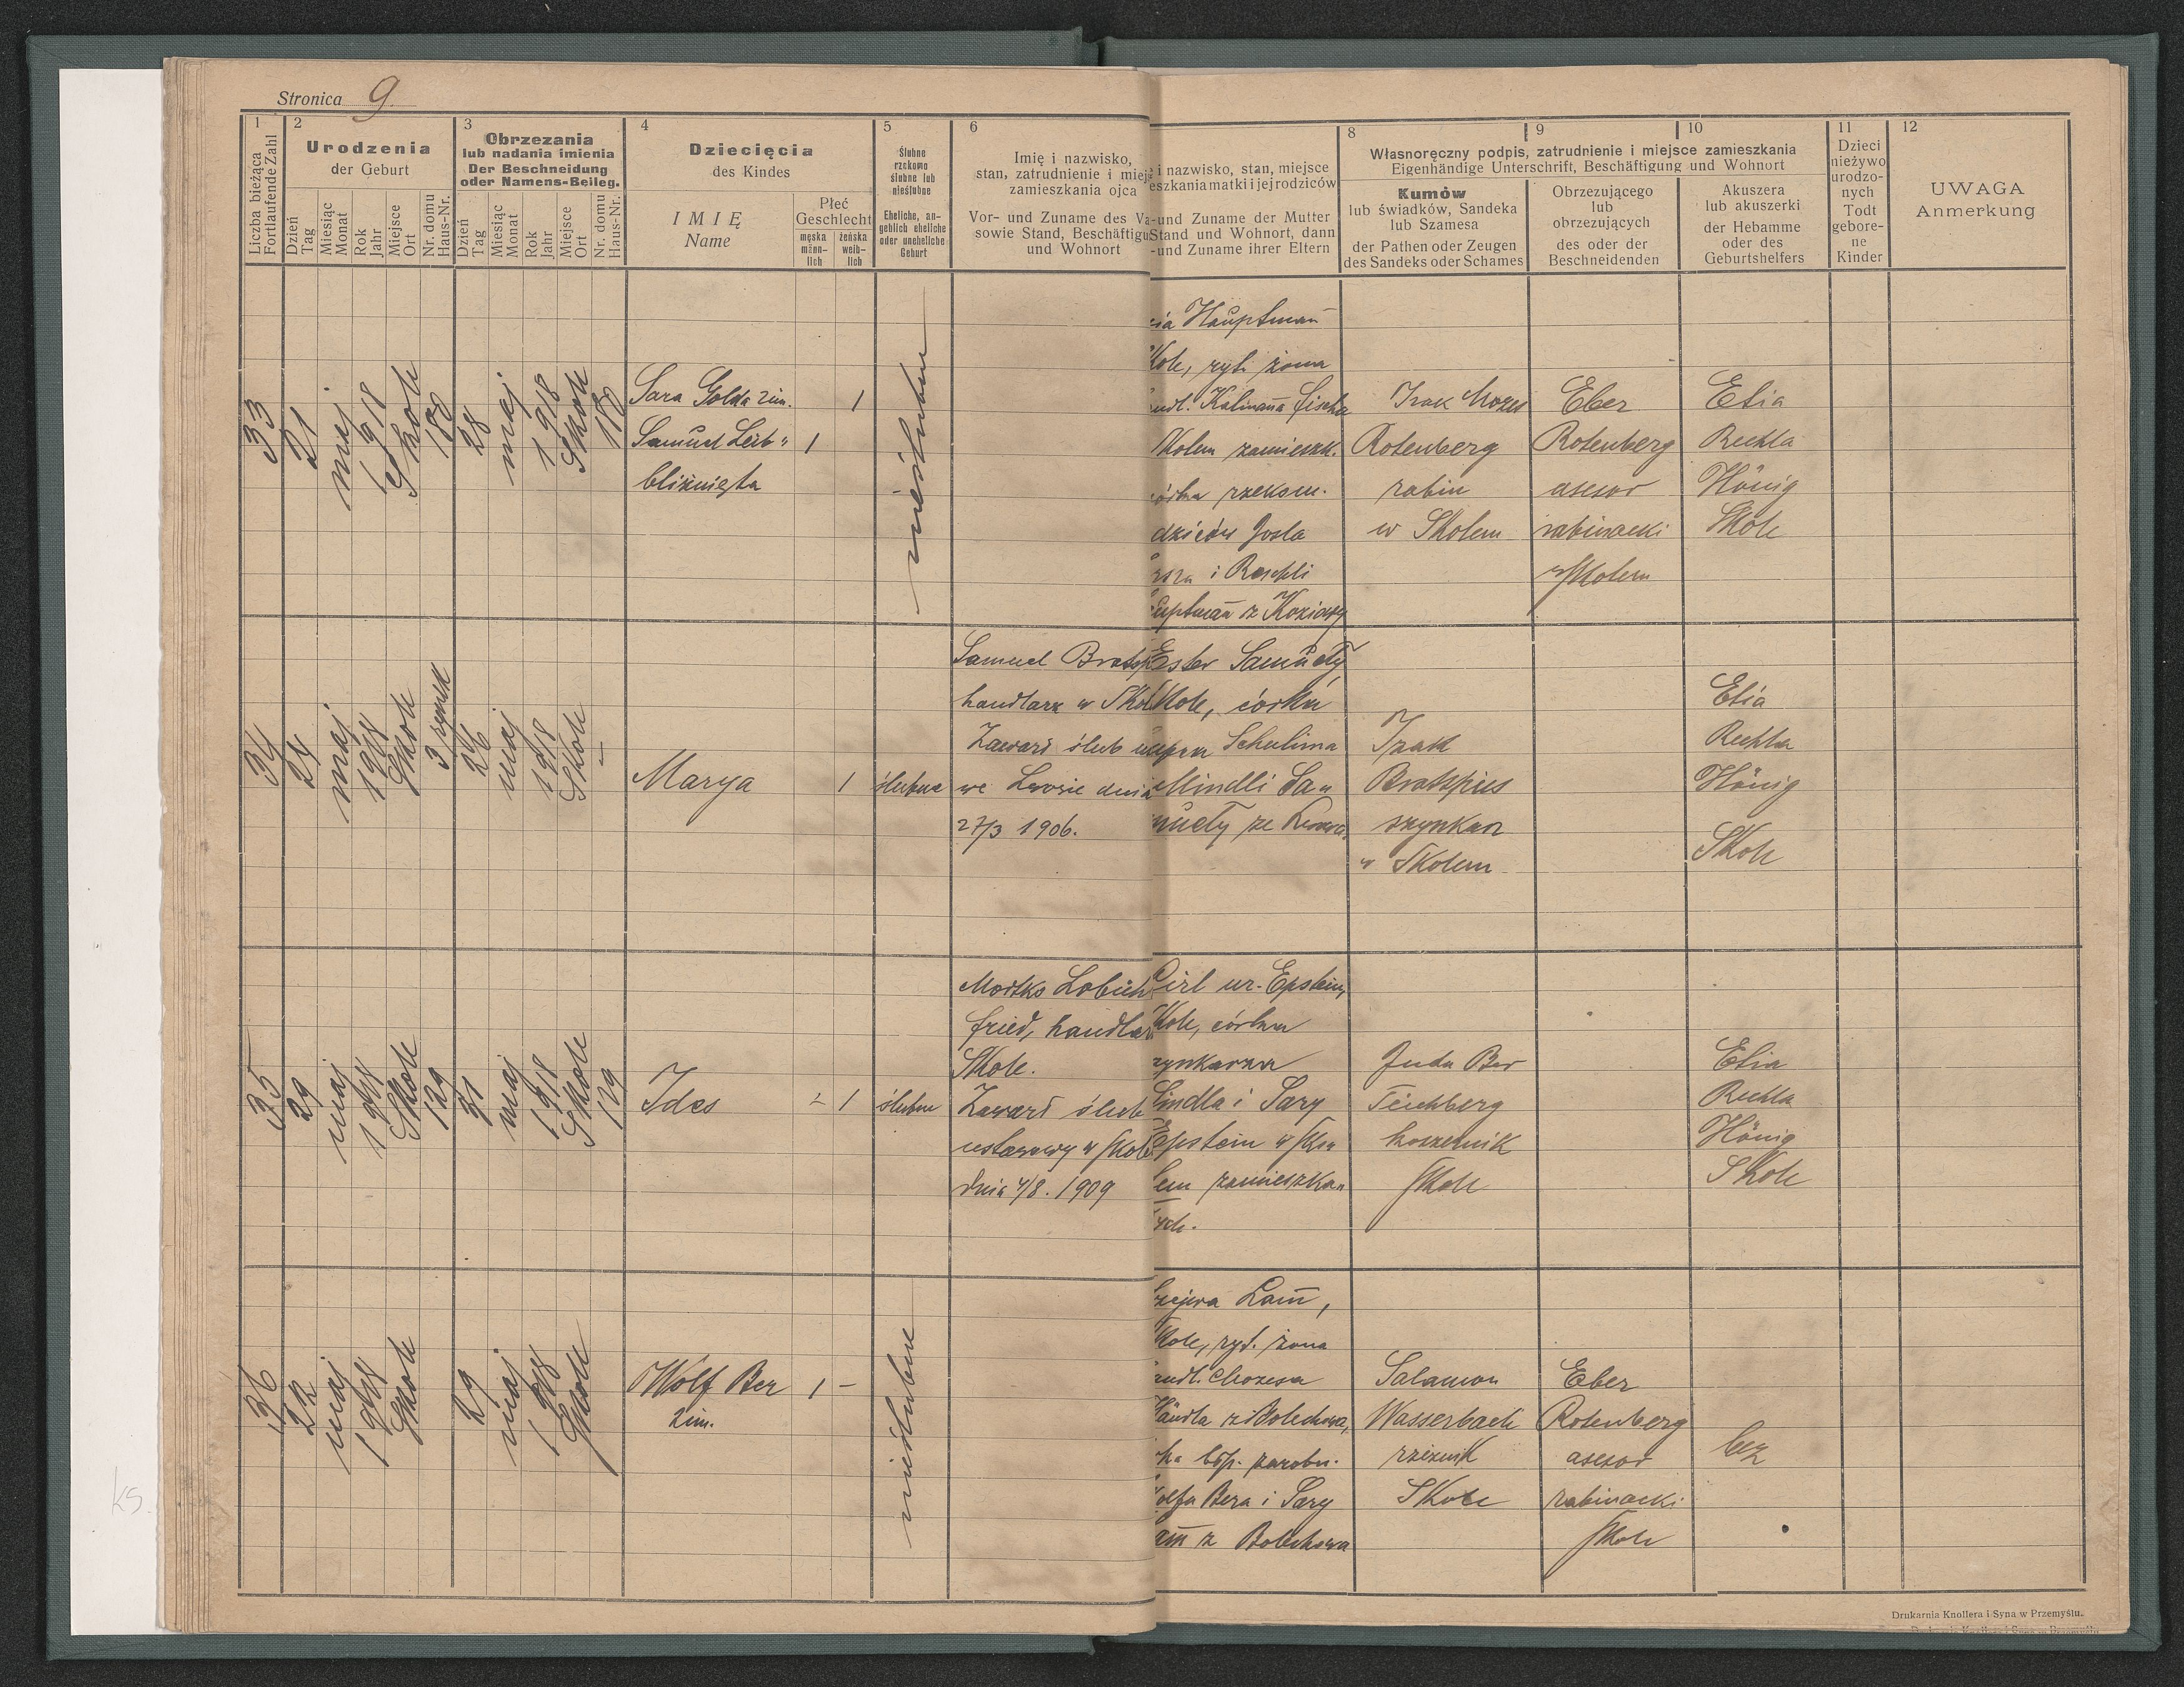 Stronica 9.
1
Liczba bieżąca
Fortlaufende Zahl
2
Urodzenia
der Geburt
Dzień
Tag
Miesiąc
Monat
Rok
Jahr
Miejsce
Ort
Nr. domu
Haus-Nr.
3
Obrzezania
lub nadania imienia
Der Beschneidung
oder Namens-Beileg.
Dzień
Tag
Miesiąc
Monat
Rok
Jahr
Miejsce
Ort
Nr. domu
Haus-Nr.
4
Dziecięcia
des Kindes
IMIĘ
Name
Płeć
Geschlecht
męska
männ-
lich
żeńska
weib-
lich
5
Ślubne
rzekomo
ślubne lub
nieślubne
Eheliche, an-
geblich eheliche
oder uneheliche
Geburt
6
Imię i nazwisko,
stan, zatrudnienie i miej
zamieszkania ojca
Vor- und Zuname des Va
sowie Stand, Beschäftigu
und Wohnort
i nazwisko, stan, miejsce
eszkania matki i jej rodziców
-und Zuname der Mutter
Stand und Wohnort, dann
-und Zuname ihrer Eltern
Własnoręczny podpis, zatrudnienie i miejsce zamieszkania
Eigenhändige Unterschrift, Beschäftigung und Wohnort
8
Kumów
lub świadków, Sandeka
lub Szamesa
der Pathen oder Zeugen
des Sandeks oder Schames
9
Obrzezującego
lub
obrzezujących
des oder der
Beschneidenden
10
Akuszera
lub akuszerki
der Hebamme
oder des
Geburtshelfers
11
Dzieci
nieżywo
urodzo-
nych
Todt
gebore-
ne
Kinder
12
UWAGA
Anmerkung
33
21
maj
1918
Skole
180
28
maj
1918
Skole
180
Sara Golda 2im.
Samuel Leib "
bliźnięta
1
1
nieślubne
Hauptman
Kole, ryt. żona
Kalmana Fische
Skolem zamieszk.
rzekom.
Josla
i
z
Izak Mozes
Rotenberg
rabin
w Skolem
Eber
Rotenberg
asesor
rabinacki
w Skolem
Etia
Rechla
Hönig
Skole
34
24
maj
1918
Skole
3 rynek
26
maj
1918
Skole
–
Marya
1
ślubne
Samuel Bratsp
handlarz w Skol
Zawarł ślub
we Lwowie dnia
27/3 1906.
Ester Samuely,
Kole, córka
Schulima
Mindli Sa„
muely ze Lwowa
Izak
Bratspies
szynkarz
w Skolem
Etia
Rechla
Hönig
Skole
35
29
maj
1918
Skole
129
31
maj
1918
Skole
129
Ides
– 1
ślubne
fried, handlarz
Skole.
Zawarł ślub
ustawowy w Skol
dnia 4/8. 1909
Cirl ur. Epstein,
Kole, córka
i Sary
Epstein w Sko„
lem zamieszka„
ych.
Juda Ber
Teichberg
Skole
Etia
Rechla
Hönig
Skole
36
22
maj
1918
Skole
29
maj
1918
Skole
Wolf Ber
2im.
1 –
nieślubne
Lam̄,
Kole, ryt. żona
Mozesa
z Bolechowa,
zarobn.
olfa Bera i Sary
am̄ z Bolechowa
Salamon
Wasserbach
rzeźnik
Skole
Eber
Rotenberg
asesor
rabinacki
Skole
bez
Drukarnia Knollera i Syna w Przemyślu.
ks.